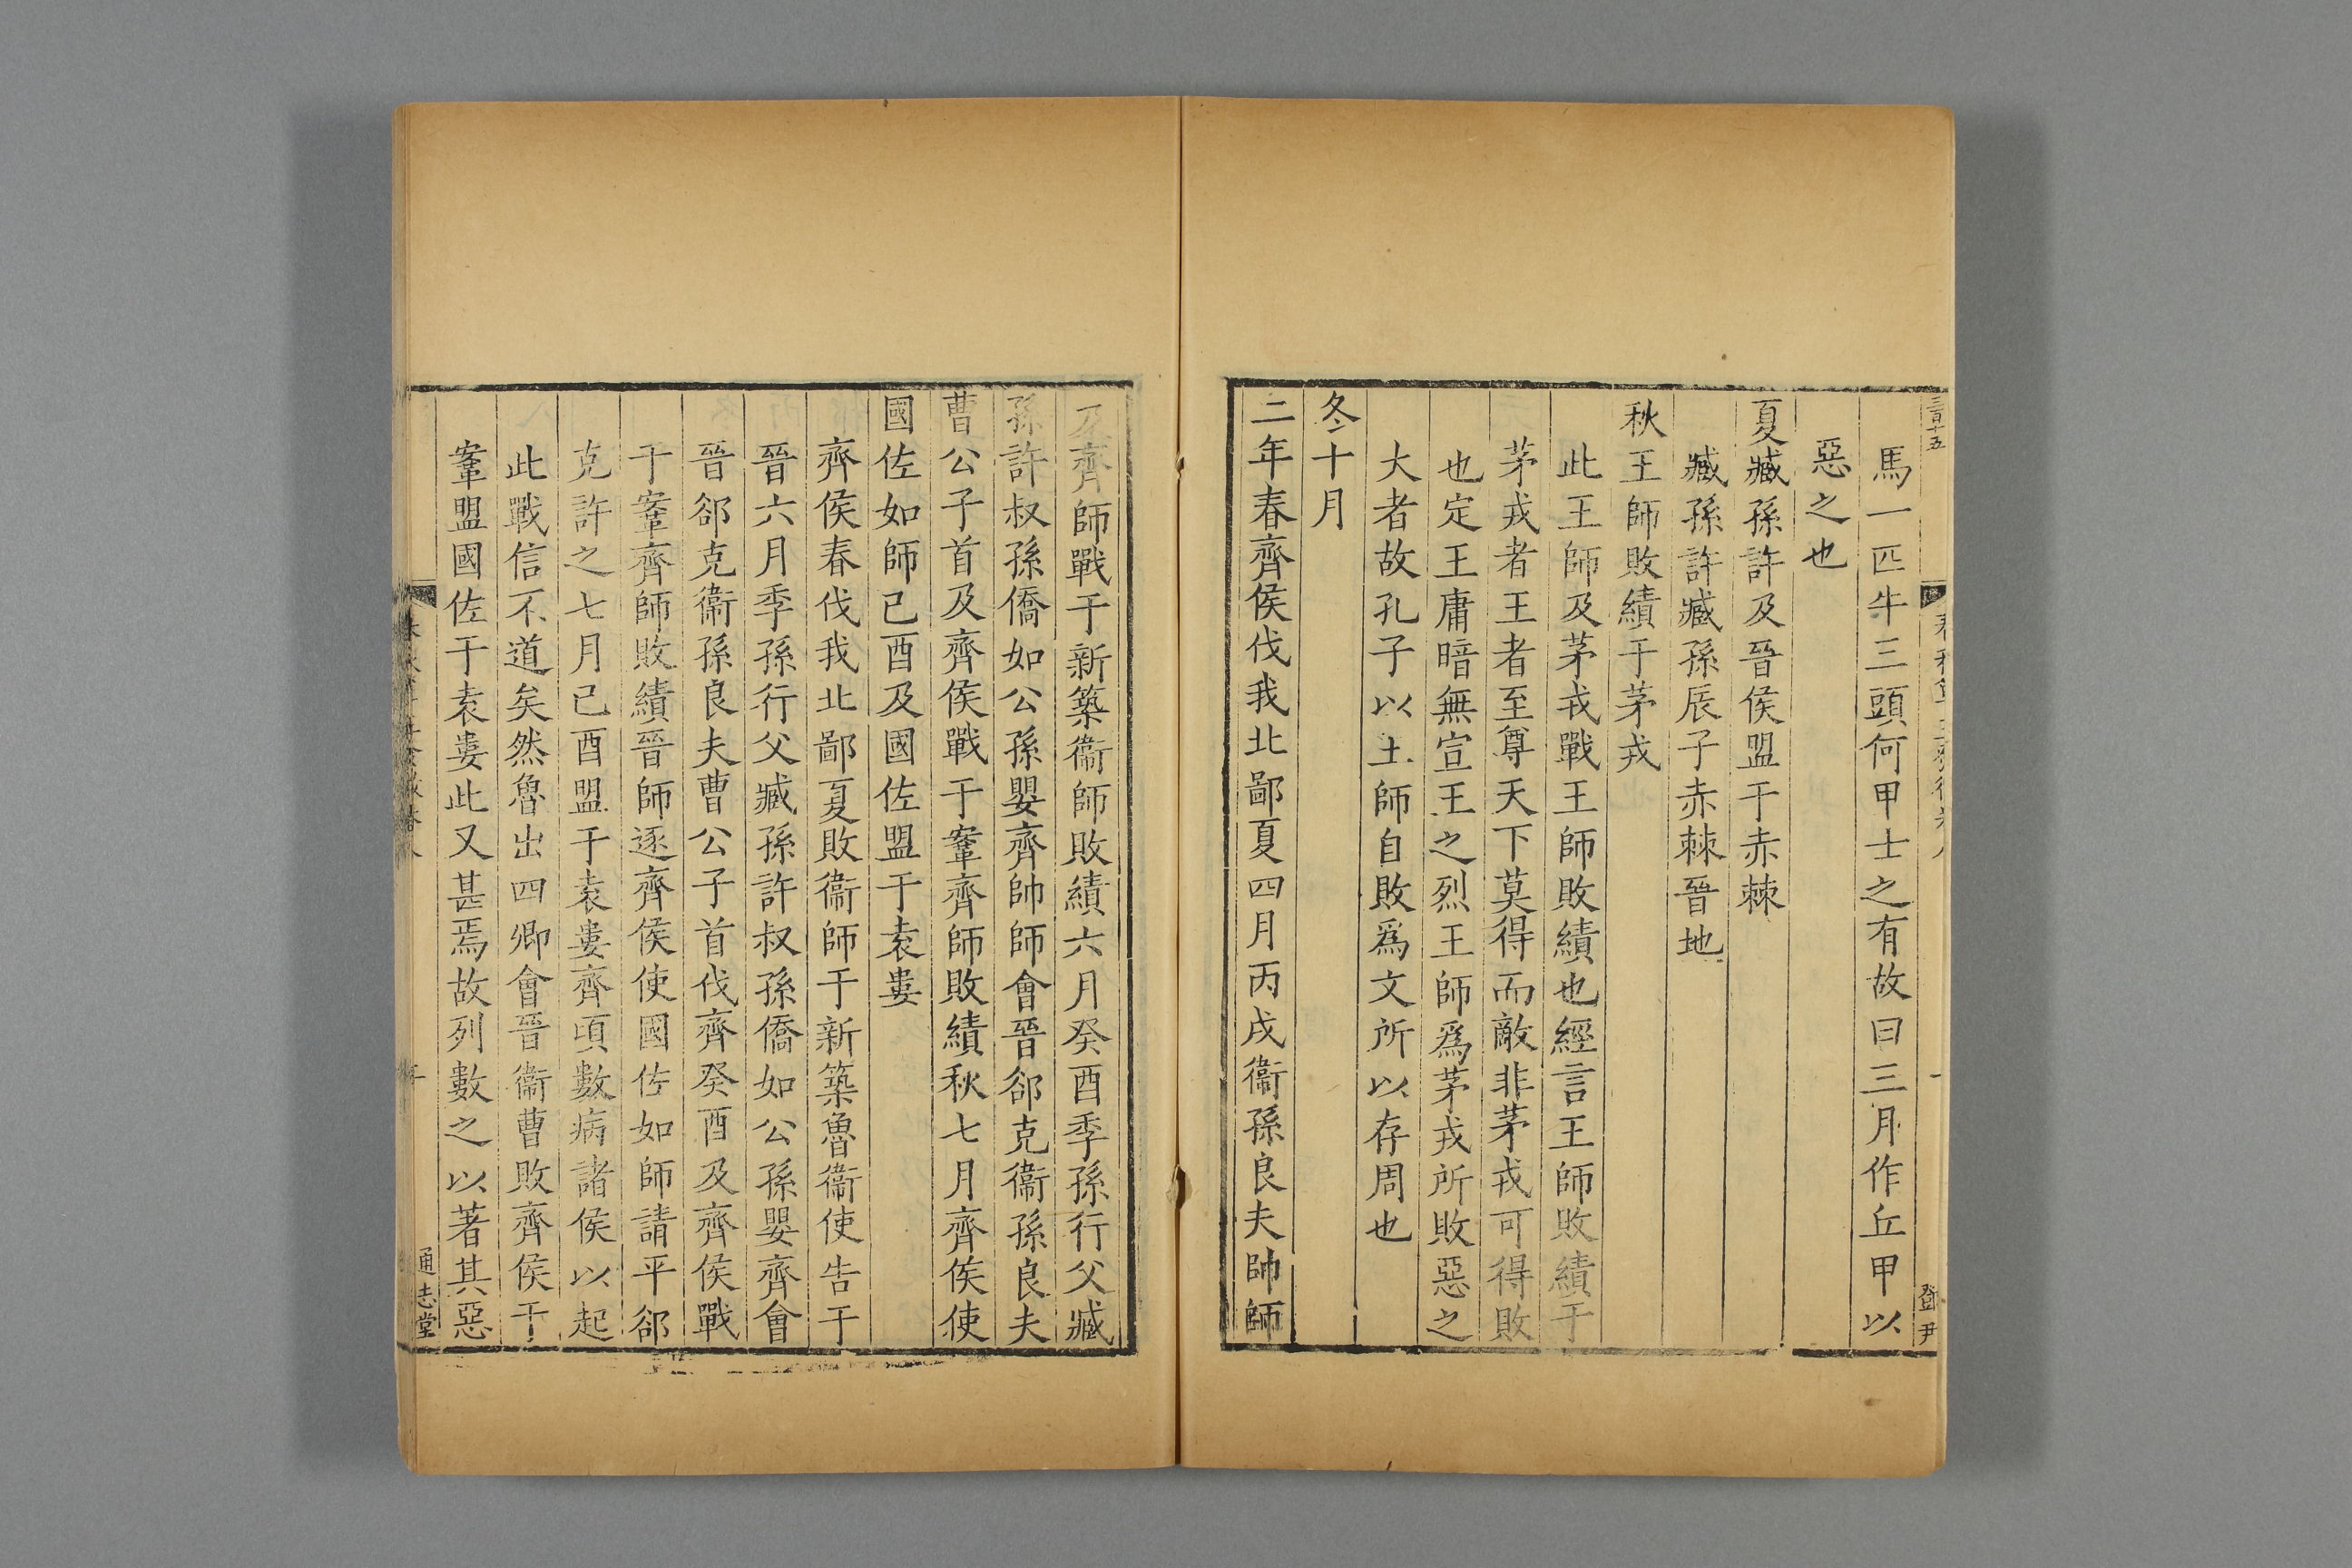 三百十五
馬一匹牛三頭何甲士之有故曰三月作丘甲以
惡之也
夏臧孫許及晉侯盟于赤棘
臧孫許臧孫辰子赤棘晉地
秋王師敗績于茅戎
此王師及茅戎戰王師敗績也經言王師敗績于
茅戎者王者至尊天下莫得而敵非茅戎可得敗
也定王庸暗無宣王之烈王師爲茅戎所敗惡之
大者故孔子以王師自敗爲文所以存周也
冬十月
二年春齊侯伐我北鄙夏四月丙戌衞孫良夫帥師
及齊師戰于新築衞師敗績六月癸酉季孫行父臧
孫許叔孫僑如公孫嬰齊帥師會晉郤克衞孫良夫
曹公子首及齊侯戰于鞌齊師敗績秋七月齊侯使
國佐如師己酉及國佐盟于袁婁
齊侯春伐我北鄙夏敗衞師于新築魯衞使告于
晉六月季孫行父臧孫許叔孫僑如公孫嬰齊會
晉郤克衞孫良夫曹公子首伐齊癸酉及齊侯戰
于鞌齊師敗績晉師逐齊侯使國佐如師請平郤
克許之七月己酉盟于袁婁齊頃數病諸侯以起
此戰信不道矣然魯出四卿會晉衞曹敗齊侯于
鞌盟國佐于袁婁此又甚焉故列數之以著其惡
通志堂